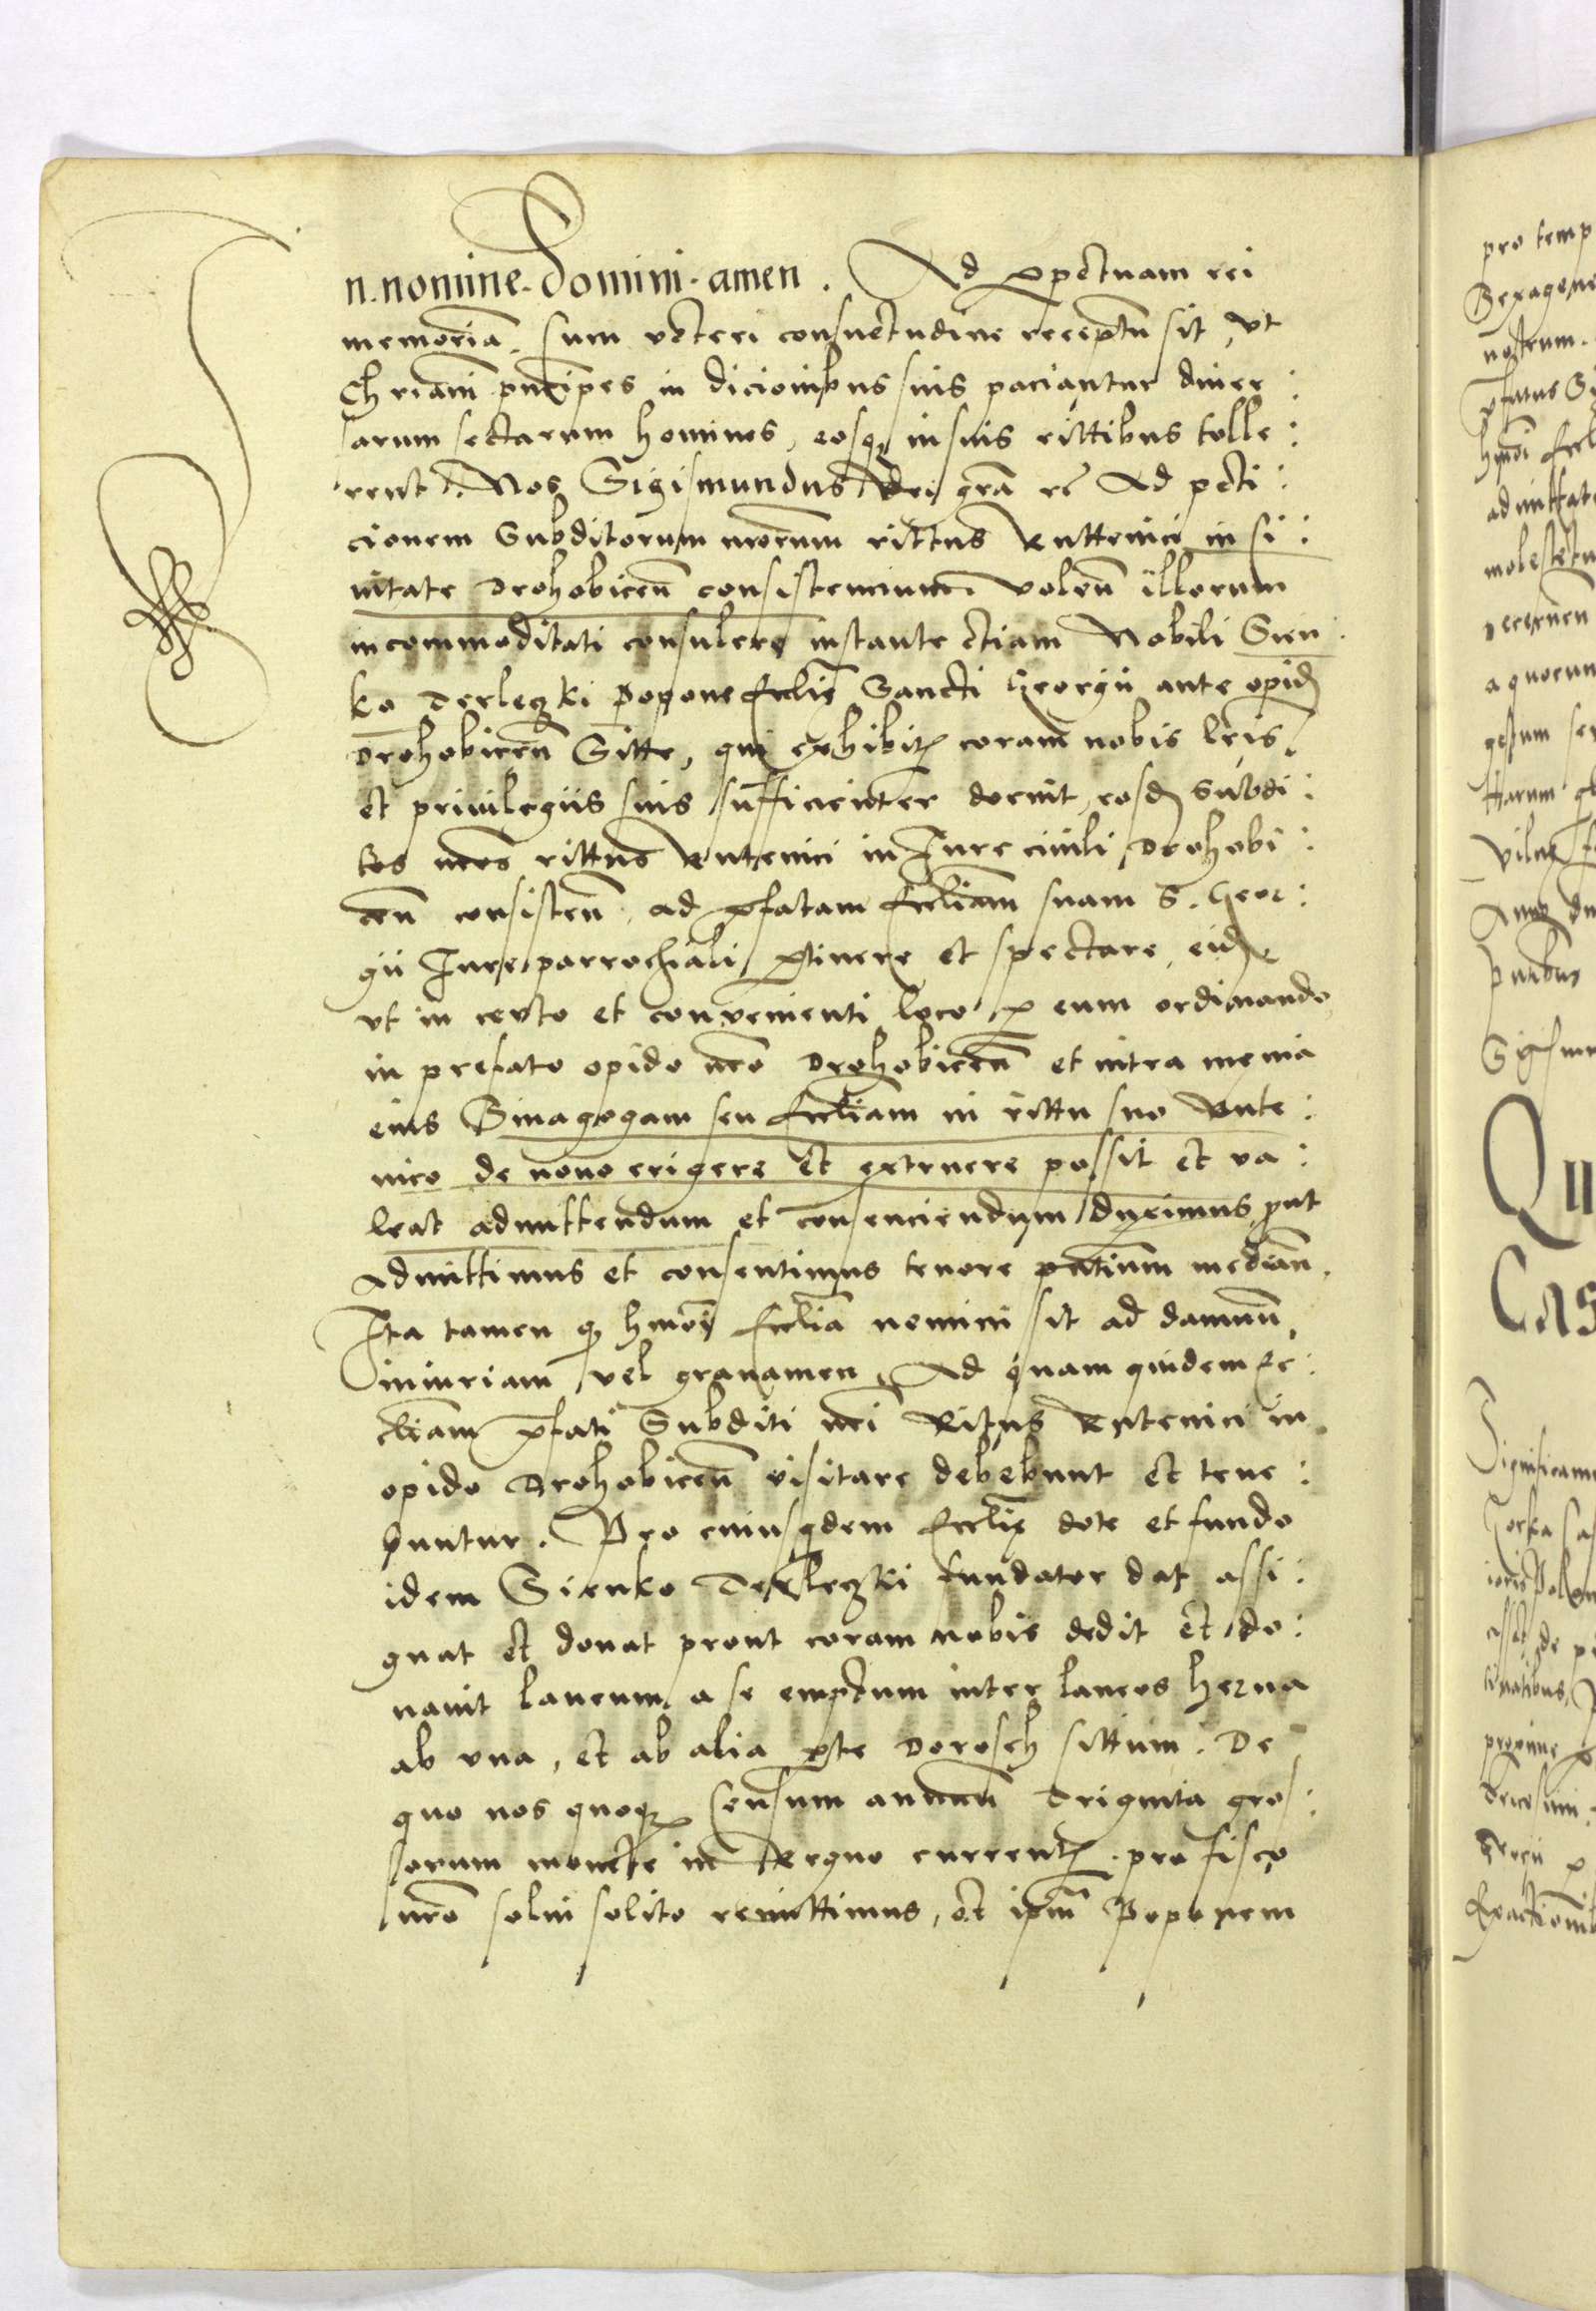 In nomine Domini amen. Ad ppetuam rei
memoria. Cum veteri consuetudine receptu sit, vt
Chriani principes in dicionibus suis paciantur diuer:
sarum sectarum homines, eosq in suis rittibus tolle:
rent. Nos Sigismundus Dei gra rc Ad peti:
cionem Subditorum nrorum rittus Ruttenici in Ci:
uitate Drohobicen consistencium volen illorum
incommoditati consulere instante etiam Nobili Sien:
ko Terleczki popone Ecclie Sancti Georgii ante opid
Drohobicen Sitte, qui exhibit coram nobis lris
et priuilegiis suis sufficienter docuit, eosd Subdi:
tos nros rittus Rutenici in Iure ciuili Drohobi:
cen consisten, ad pfatam Eccliam suam S. Geor:
gii Iure parrochiali ptinere et spectare, eid
vt in certo et convenienti loco p eum ordinando
in prefato opido nro Drohobicen et intra menia
eius Sinagogam seu Eccliam in rittu suo Rute:
nico de nouo erigere et extruere possit et va:
leat admittendum et consenciendum duximus, put
admittimus et consentimus tenore pntium median.
Ita tamen q hmoi Ecclia nemini sit ad damnu,
iniuriam vel grauamen, Ad quam quidem Ec:
cliam pfati Subditi nri Ritus Rutenici in
opido Drohobicen visitare debebunt et tene:
buntur. Pro cuiusquidem Ecclie dote et fundo
idem Sienko Terleczki fundator dat assi:
gnat et donat prout coram nobis dedit et do:
nauit laneum a se emptum inter laneos Herna
ab vna, et ab alia pte Dorosch sittum. De
quo nos quoq Censum annuu Triginta gros:
sorum monete in Regno current pro fisco
nro solui solito remittimus, et ipm Poponem
pro temp
Sexagene
nostrum.
pfatus Si
hmoi Eccl
admittat
molestetu
decernen
a quocun
Anno
Sigismu
Qu
Cas
Significam
Exactionib